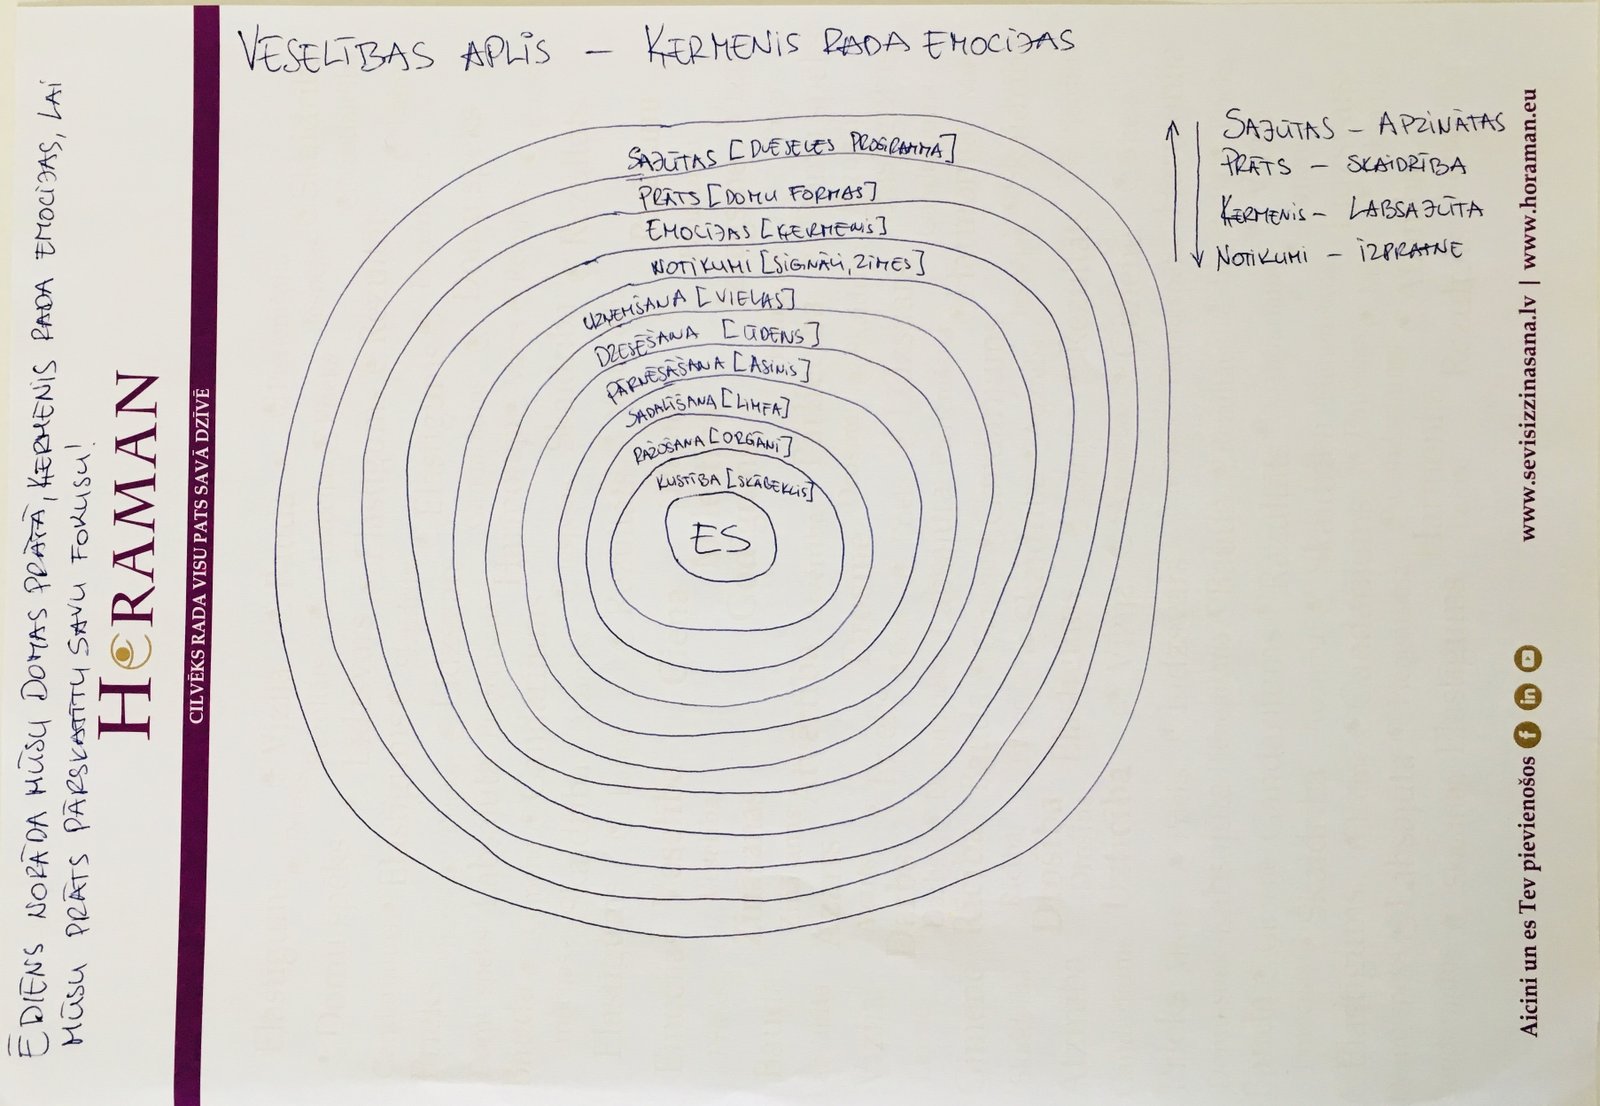 VESELĪBAS APLIS – ĶERMENIS RADA EMOCIJAS
SAJŪTAS [DVĒSELES PROGRAMMA]
PRĀTS [DOMU FORMAS]
EMOCIJAS [ĶERMENIS]
NOTIKUMI [SIGNĀLI, ZĪMES]
UZŅEMŠANA [VIELAS]
DZESĒŠANA [ŪDENS]
PĀRNĒSĀŠANA [ASINIS]
SADALĪŠANA [LIMFA]
RAŽOŠANA [ORGĀNI]
KUSTĪBA [SKĀBEKLIS]
ES
SAJŪTAS – APZINĀTAS
PRĀTS – SKAIDRĪBA
ĶERMENIS – LABSAJŪTA
NOTIKUMI – IZPRATNE
ĒDIENS NORĀDA MŪSU DOMAS PRĀTĀ, ĶERMENIS RADA EMOCIJAS, LAI
MŪSU PRĀTS PĀRSKATĪTU SAVU FOKUSU!
HORAMAN
CILVĒKS RADA VISU PATS SAVĀ DZĪVĒ
Aicini un es Tev pievienošos
www.sevisizzinasana.lv | www.horaman.eu